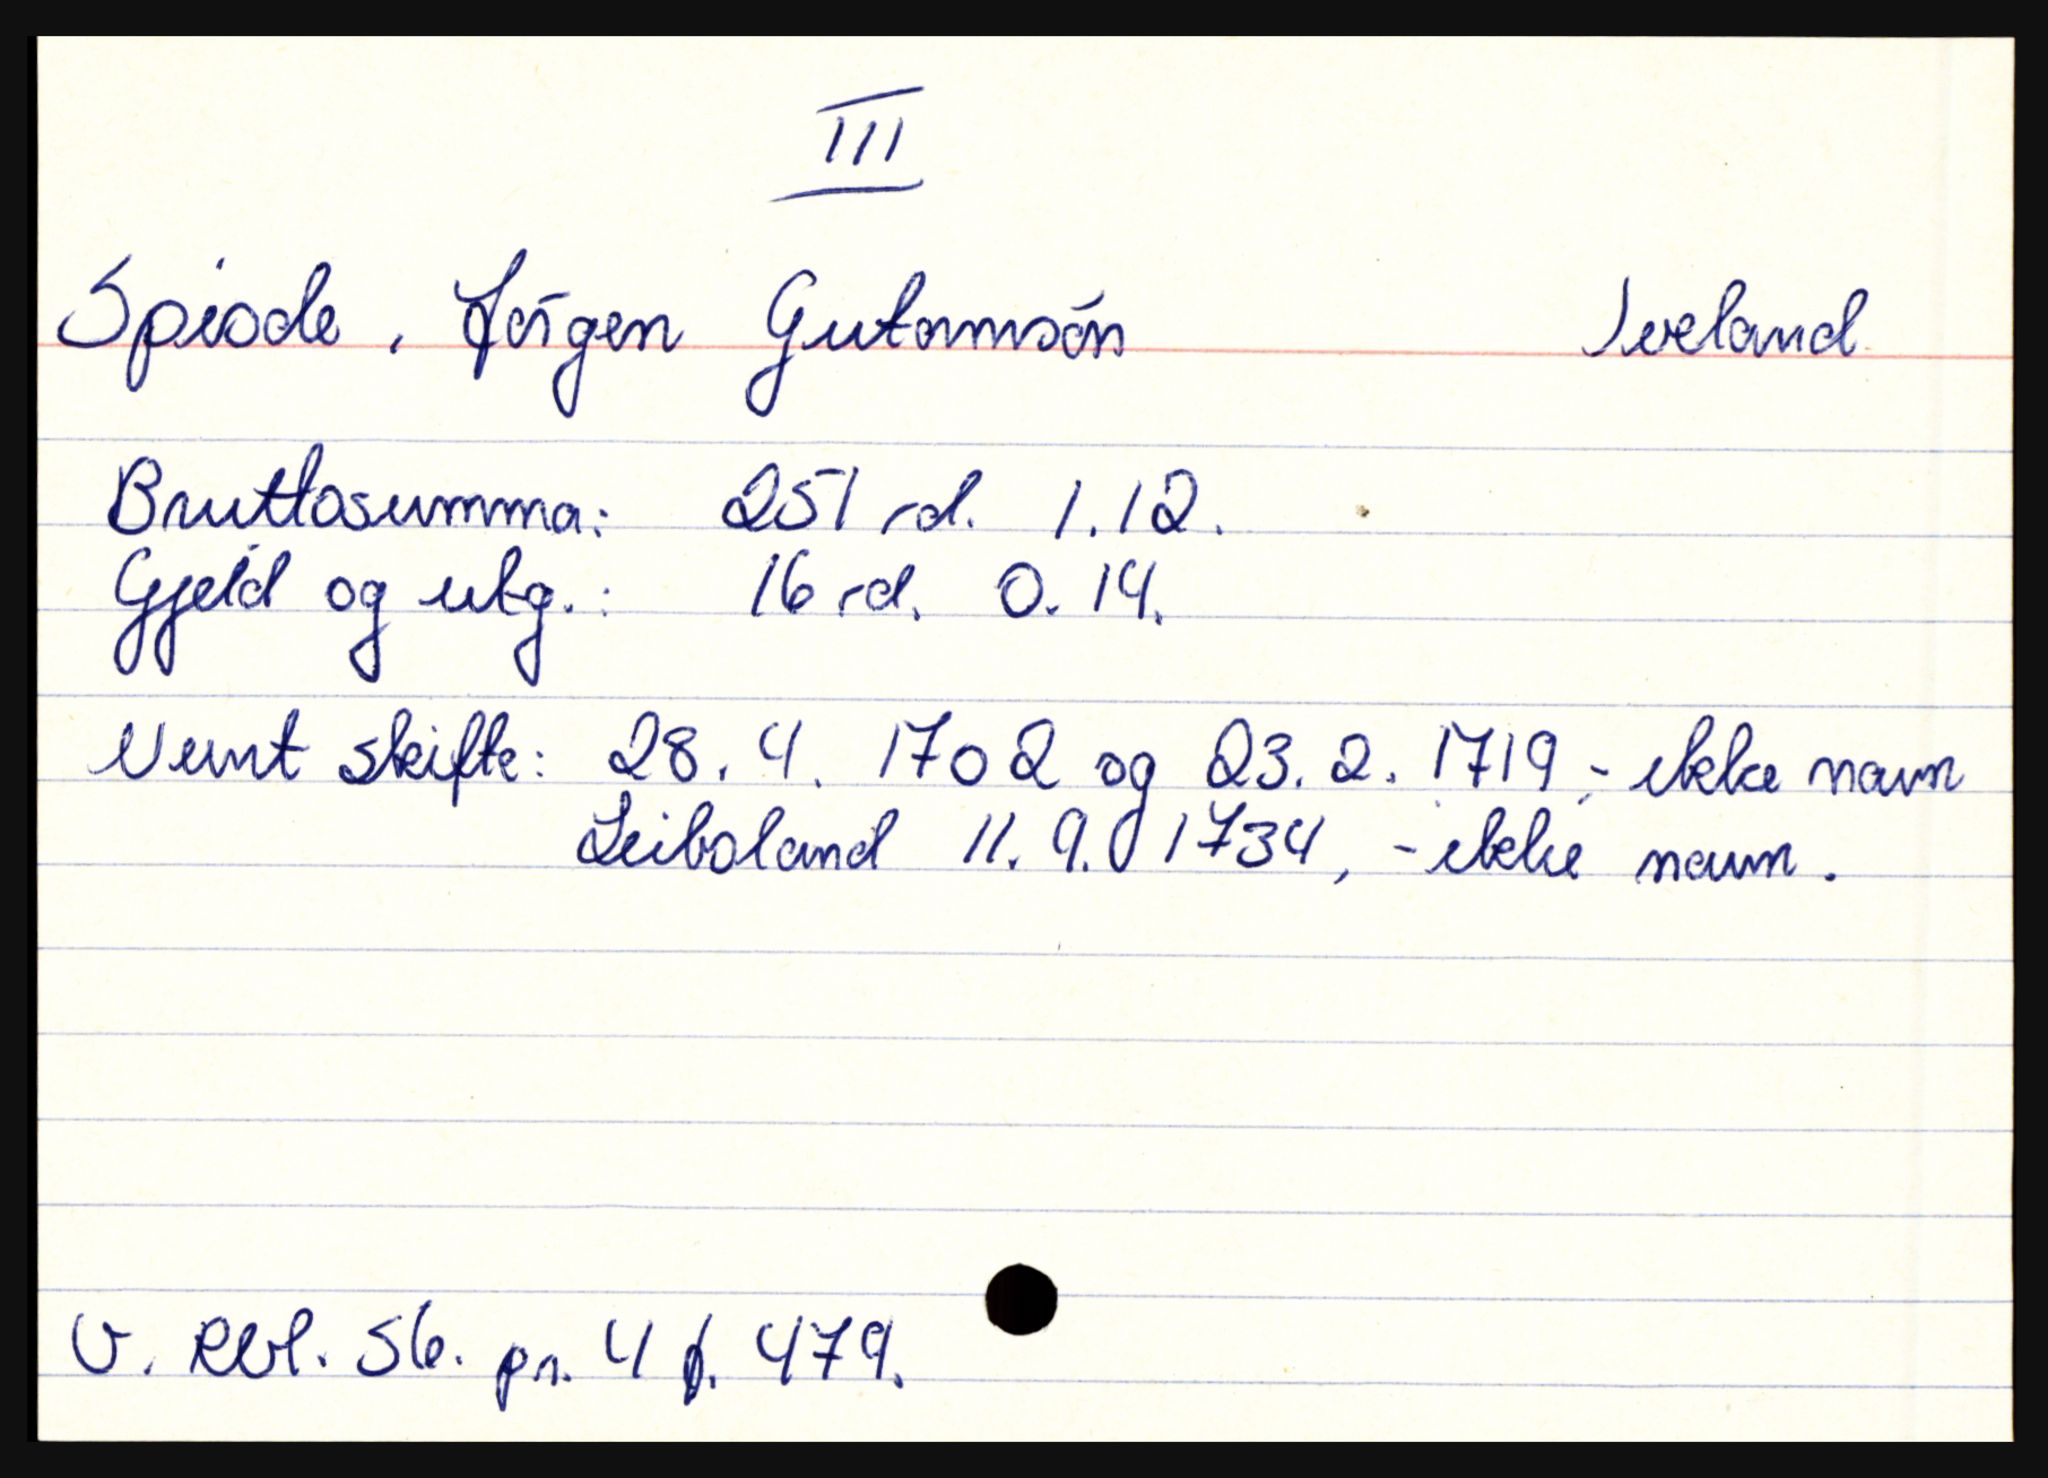 III
Spiode, Jörgen Gutormsön Iveland
Bruttosumma: 251 rd. 1.12.
Gjeld og utg.: 16 rd. 0.14.
Nemnt skifte: 28. 4. 1702 og 23. 2. 1719, - ikke navn
Leiboland 11. 9. 1734, - ikke navn.
V. Rbl. Sb. pr. 4 f. 479.